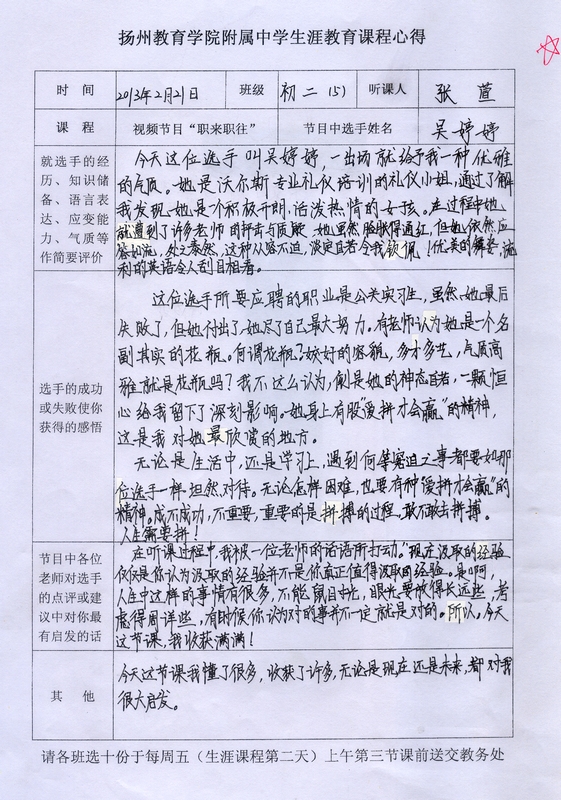 扬州教育学院附属中学生涯教育课程心得
时 间 2013年2月21日 班级 初二(5) 听课人 张萱
课 程 视频节目“职来职往” 节目中选手姓名 吴婷婷
就选手的经
历、知识储
备、语言表
达、应变能
力、气质等
作简要评价
今天这位选手叫吴婷婷,一出场就给予我一种优雅
的气质。她是沃尔斯专业礼仪培训的礼仪小姐,通过了解
我发现,她是个积极开朗,活泼热情的女孩。在过程中她
就遭到了许多老师的抨击与质疑,她虽然脸胀得通红,但她依然应
答如流,处之泰然,这种从容不迫,淡定自若令我钦佩!优美的舞姿,流
利的英语令人刮目相看。
选手的成功
或失败使你
获得的感悟
这位选手所要应聘的职业是公关实习生,虽然她最后
失败了,但她付出了,她尽了自己最大努力。有老师认为她是一个名
副其实的花瓶。何谓花瓶?姣好的容貌,多才多艺,气质高
雅就是花瓶吗?我不这么认为,倒是她的神态自若,一颗恒
心给我留下了深刻影响。她身上有股“爱拼才会赢”的精神,
这是我对她最欣赏的地方。
无论是生活中,还是学习上,遇到何等窘迫之事都要如那
位选手一样坦然对待。无论怎样困难,也要有种“爱拼才会赢”的
精神。成不成功,不重要,重要的是拼搏的过程,敢不敢去拼搏。
人生需要拼!
节目中各位
老师对选手
的点评或建
议中对你最
有启发的话
在听课过程中,我被一位老师的话语所打动。“现在汲取的经验
仅仅是你认为汲取的经验并不是你真正值得汲取的经验。是啊,
人生中这样的事情有很多,不能鼠目寸光,眼光要放得长远些,考
虑得周详些,有时候你认为对的事并不一定就是对的。所以,今天
这节课,我收获满满!
其 他
今天这节课我懂了很多,收获了许多,无论是现在还是未来,都对我
很大启发。
请各班选十份于每周五(生涯课程第二天)上午第三节课前送交教务处